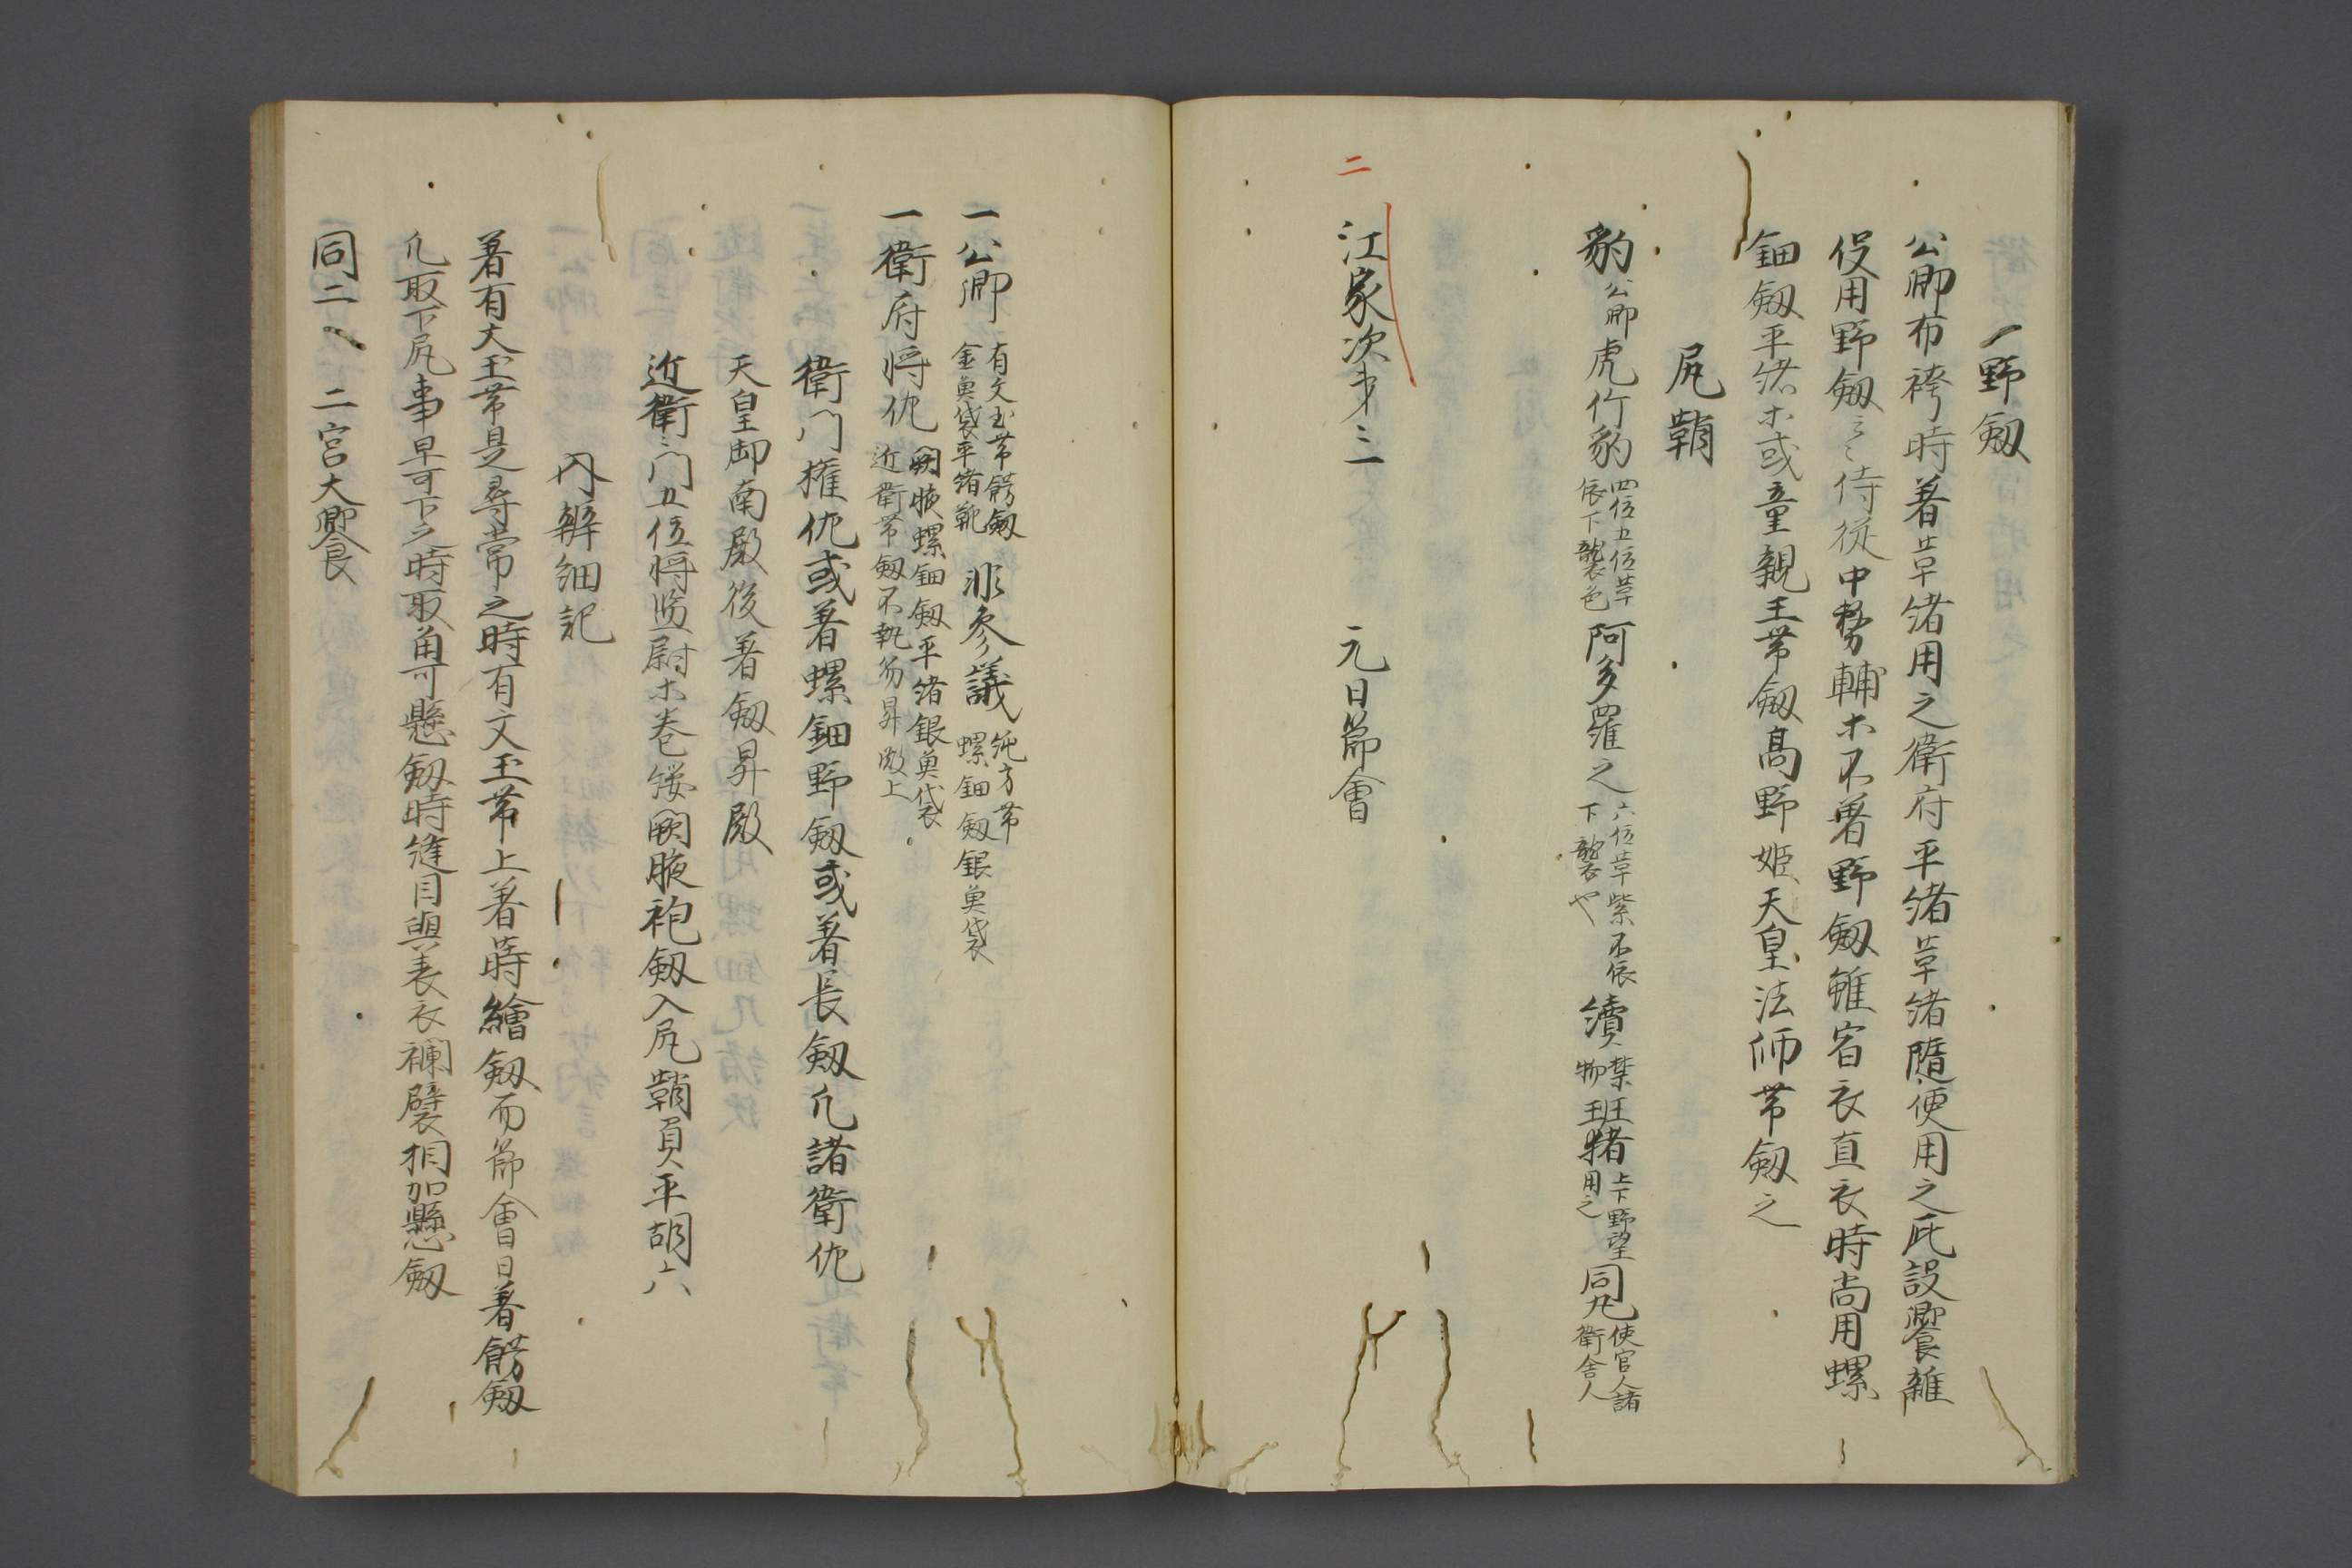 一野劔
公卿布袴時著革緒用之衛府平緒革緒隨便用之庇設饗雖
役用野劔々々侍従中務輔不著野劔雖宿衣直衣時尚用螺
鈿劔平緒木或童親王帯劔高野姫天皇法師帯劔之
尻鞘
豹公卿虎竹豹四位五位革
依下襲色阿多羅之六位革紫不依
下襲や續禁
物斑猪上下野望
用之同丸使官人諸
衛舎人
二
江家次才三 元日節會
一公卿有文玉帯餝劔
金魚袋平緒靴非参議純方帯
螺鈿劔銀魚袋
一衛府将佐闕腋螺鈿劔平緒銀魚袋
近衛帯劔不執笏昇殿上
衛門権佐或著螺鈿野劔或著長劔凡諸衛佐
天皇御南殿後著劔昇殿
近衛々門五位将監尉木巻緌闕腋袍劔入尻鞘負平胡六
内辨細記
著有文玉帯是尋常之時有文玉帯上著蒔繪劔而節會日著餝劔
凡取下尻事早可下之時取角可懸劔時縫目與表衣襴襞相加懸劔
同二、 二宮大饗